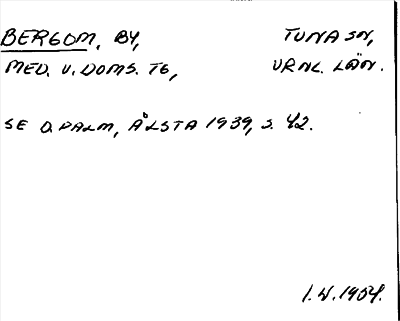 BERGOM, BY, TUNA SN,
MED. V. DOMS. TG, VRNL. LÄN.
SE D. PALM, ÅLSTA 1939, S. 42.
1.IV.1954.